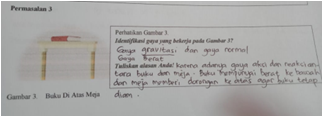 Permasalan 3
Perhatikan Gambar 3
Identifikasi gaya yang bekerja pada Gambar 3?
Gaya gravitasi dan gaya normal
Gaya Berat
Tuliskan alasan Anda! karena adanya gaya aksi dan reaksi an-
tara buku dan meja. Buku mempunyai berat ke bawah
dan meja memberi dorongan ke atas agar buku tetap
diam.
Gambar 3 Buku Di Atas Meja